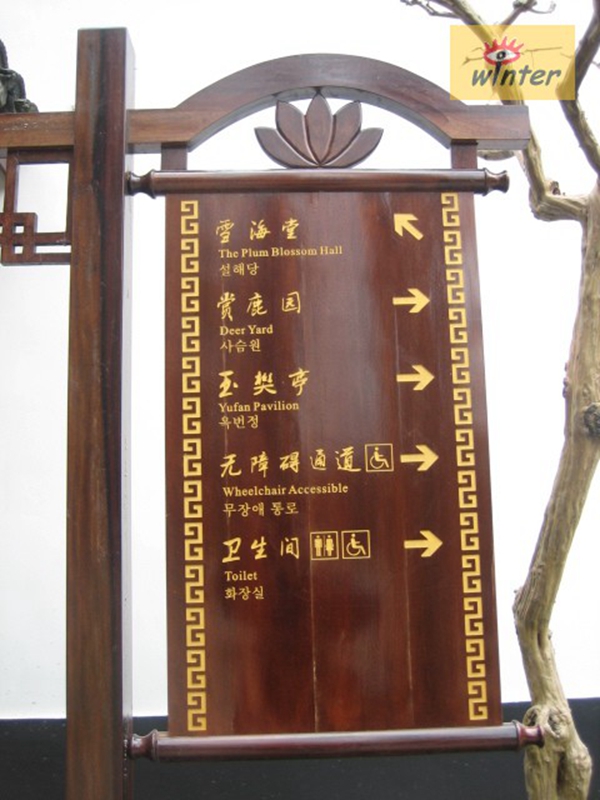 winter
雪海堂
The Plum Blossom Hall
설해당
赏鹿园
Deer Yard
사슴원
玉樊亭
Yufan Pavilion
옥번정
无障碍通道
Wheelchair Accessible
무장애 통로
卫生间
Toilet
화장실